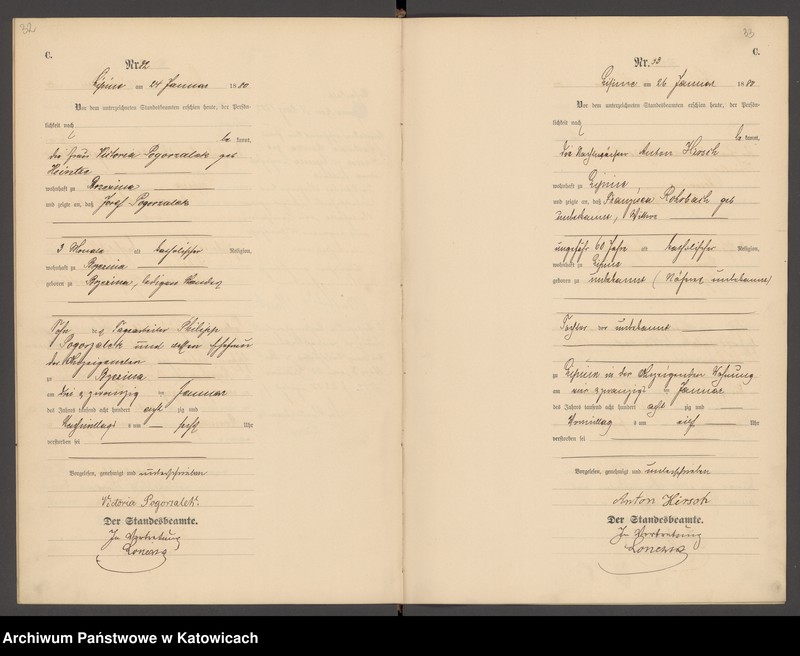 32.
C.
Nr. 32
Lipine am 24 Januar 1880
Vor dem unterzeichneten Standesbeamten erschien heute, der Persön-
lichkeit nach
be kannt,
die Frau Victoria Pogorzalek geb
wohnhaft zu
und zeigte an, daß Josef Pogorzalek
3 Monate alt katholischer Religion,
wohnhaft zu
geboren zu ledigen Standes
Sohn des Tagearbeiter Philipp
Pogorzalek und dessen Ehefrau
der Anzeigenden
zu
am drei u zwanzig ten Januar
des Jahres tausend acht hundert acht zig und
Nachmittags um Uhr
verstorben sei
Vorgelesen, genehmigt und unterschrieben
Victoria Pogorzalek.
Der Standesbeamte.
In Vertretung
33
C.
Nr. 33
Lipine am 26 Januar 1880
Vor dem unterzeichneten Standesbeamten erschien heute, der Persön-
lichkeit nach
be kannt,
der Nachtwächter Anton Hirsch
wohnhaft zu Lipine
und zeigte an, daß Franziska Rohrbach geb
unbekannt, Wittwe
ungefähr 60 Jahre alt katholischer Religion,
wohnhaft zu Lipine
geboren zu unbekannt (Näheres unbekannt)
Tochter der unbekannt
zu Lipine in der Anzeigenden Wohnung
am vier u zwanzigs ten Januar
des Jahres tausend acht hundert acht zig und
Vormittags um elf Uhr
verstorben sei
Vorgelesen, genehmigt und unterschrieben
Anton Hirsch
Der Standesbeamte.
In Vertretung
Archiwum Państwowe w Katowicach